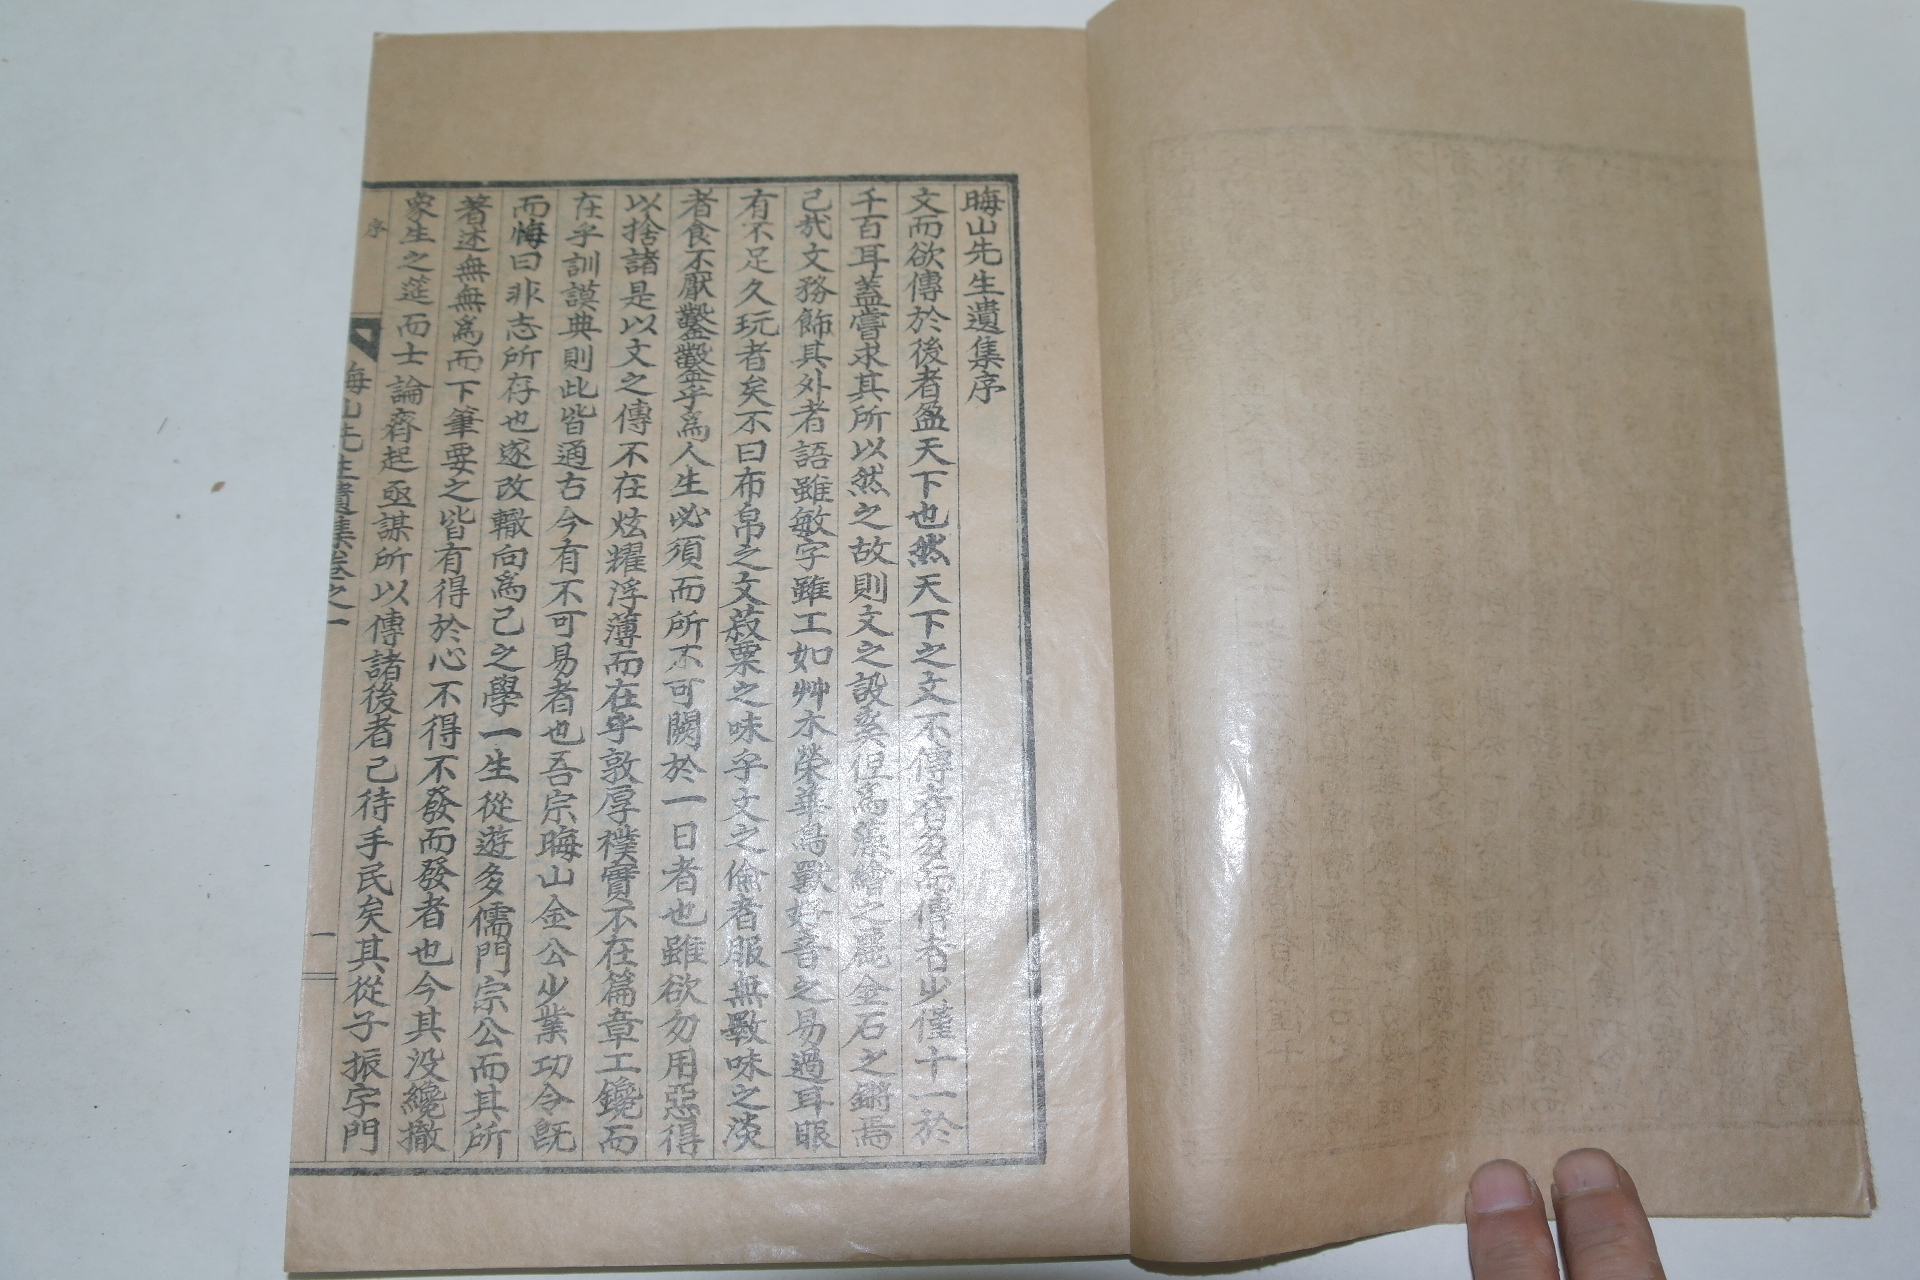 晦山先生遺集序
文而欲傳於後者盈天下也然天下之文不傳者多而傳者少僅十一於
千百耳蓋嘗求其所以然之故則文之設奚但為藻繪之麗金石之鏘焉
己哉文務飾其外者語雖敏字雖工如艸木榮華鳥獸好音之易過耳眼
有不足久玩者矣不曰布帛之文菽粟之味乎文之倫者服無斁味之淡
者食不厭鑿鑿乎爲人生必須而所不可闕於一日者也雖欲勿用惡得
以捨諸是以文之傳不在炫耀浮薄而在乎敦厚樸實不在篇章工鑱而
在乎訓謨典則此皆通古今有不可易者也吾宗晦山金公少業功令旣
而悔曰非志所存也遂改轍向爲己之學一生從遊多儒門宗公而其所
著述無無爲而下筆要之皆有得於心不得不發而發者也今其沒纔撤
象生之筵而士論齊起亟謀所以傳諸後者己待手民矣其從子振宇門
序
晦山先生遺集卷之一
一